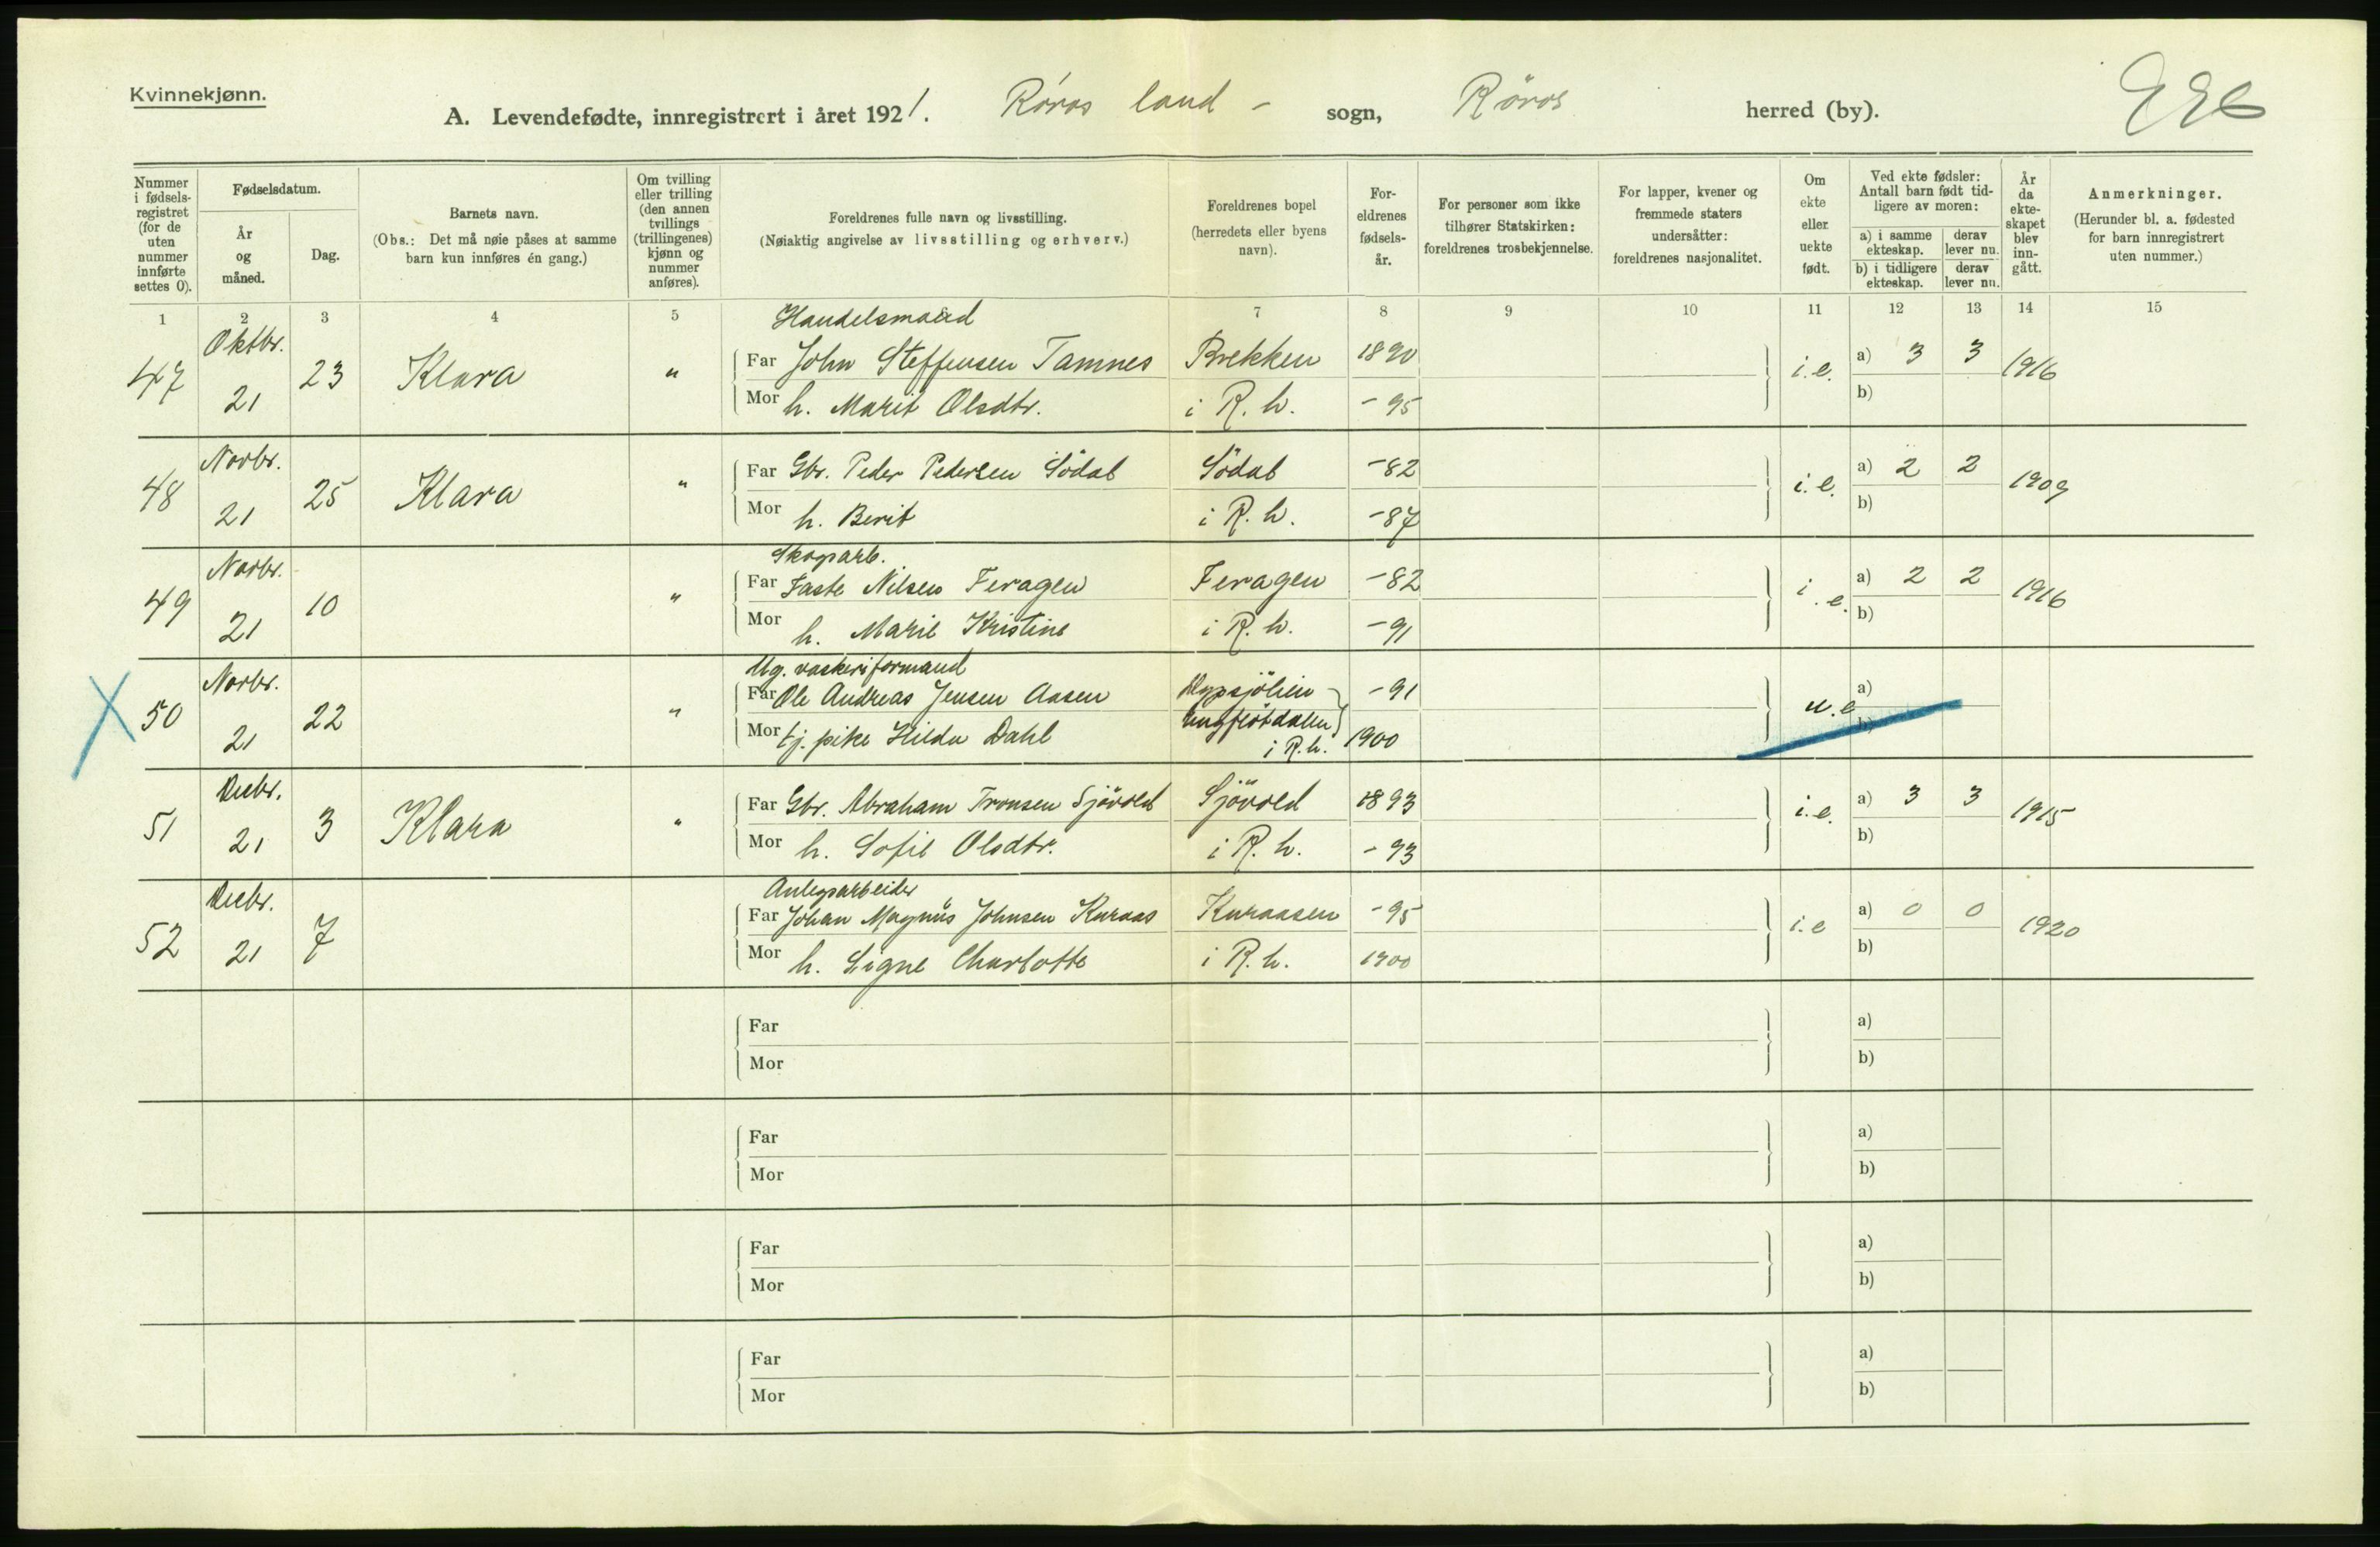 Kvinnekjønn.
A. Levendefødte, innregistrert i året 1921. Röros land - sogn, Röros herred (by).
Nummer i fødselsregistret (for de uten nummer innførte settes 0).
Fødselsdatum.
År og måned.
Dag.
Barnets navn.
(Obs.: Det må nøie påses at samme barn kun innføres én gang.)
Om tvilling eller trilling (den annen tvillings (trillingenes) kjønn og nummer anføres).
Foreldrenes fulle navn og livsstilling.
(Nøiaktig angivelse av livsstilling og erhverv.)
Foreldrenes bopel (herredets eller byens navn).
Foreldrenes fødselsår.
For personer som ikke tilhører Statskirken: foreldrenes trosbekjennelse.
For lapper, kvener og fremmede staters undersåtter: foreldrenes nasjonalitet.
Om ekte eller uekte født.
Ved ekte fødsler: Antall barn født tidligere av moren:
a) i samme ekteskap. derav lever nu.
b) i tidligere ekteskap. derav lever nu.
År da ekteskapet blev inngått.
Anmerkninger.
(Herunder bl. a. fødested for barn innregistrert uten nummer.)
1 2 3 4 5 7 8 9 10 11 12 13 14 15
Handelsmand
47 Oktbr. 21 23 Klara " Far John Steffensen Tamnes Brekken 1890 i.e. a) 3 3 1916
Mor h. Marit Olsdtr. i R. h. -95 b)
48 Novbr. 21 25 Klara " Far Gbr. Peder Pedersen Södal Södal -82 i.e. a) 2 2 1909
Mor h. Berit i R. h. -87 b)
Skogarb.
49 Novbr. 21 10 " Far Faste Nilsen Feragen Feragen -82 i.e. a) 2 2 1916
Mor h. Marie Kristine i R. h. -91 b)
Ug. vaskeriformand
50 Novbr. 21 22 " Far Ole Andreas Jensen Aasen -91 u.e a)
Mor tj. pike Hilda Dahl i R. h. 1900 b)
51 Decbr. 21 3 Klara " Far Gbr. Abraham Tronsen Sjövold Sjövold 1893 i.e. a) 3 3 1915
Mor h. Sofie Olsdtr. i R. h. -93 b)
Anlegsarbeider
52 Decbr. 21 7 Far Johan Magnus Johnsen Kuraas Kuraasen -95 i.e a) 0 0 1920
Mor h. Signe Charlotte i R. h. 1900 b)
Far a)
Mor b)
Far a)
Mor b)
Far a)
Mor b)
Far a)
Mor b)